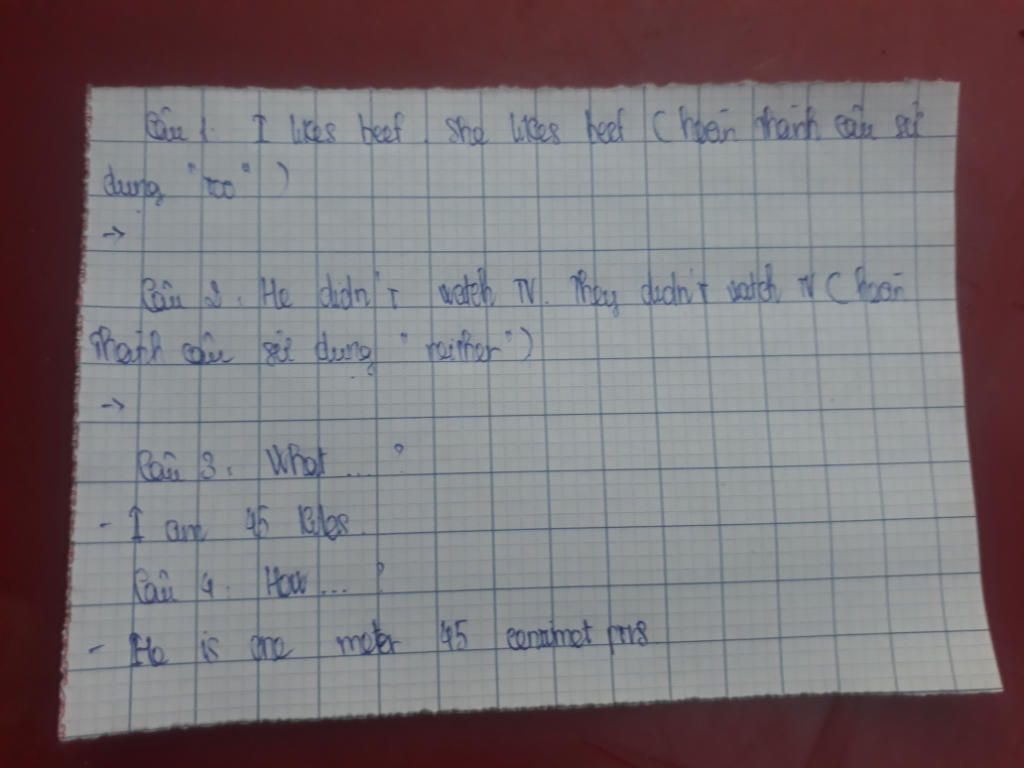 Câu 1. I likes beef. She likes beef (hoàn thành câu sử
dụng "too")
→
Câu 2. He didn't watch TV. They didn't watch TV (hoàn
thành câu sử dụng "neither")
→
Câu 3. What ... ?
- I am 45 kilos.
Câu 4. How ... ?
- He is one meter 45